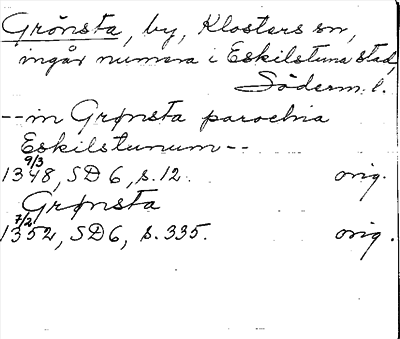 Grönsta, by, Klosters sn,
ingår numera i Eskilstuna stad,
Söderm. l.
--in Grønsta parochia
Eskilstunum--
9/3
1348, SD 6, s. 12. orig.
Grønsta
7/2
1352, SD 6, s. 335. orig.